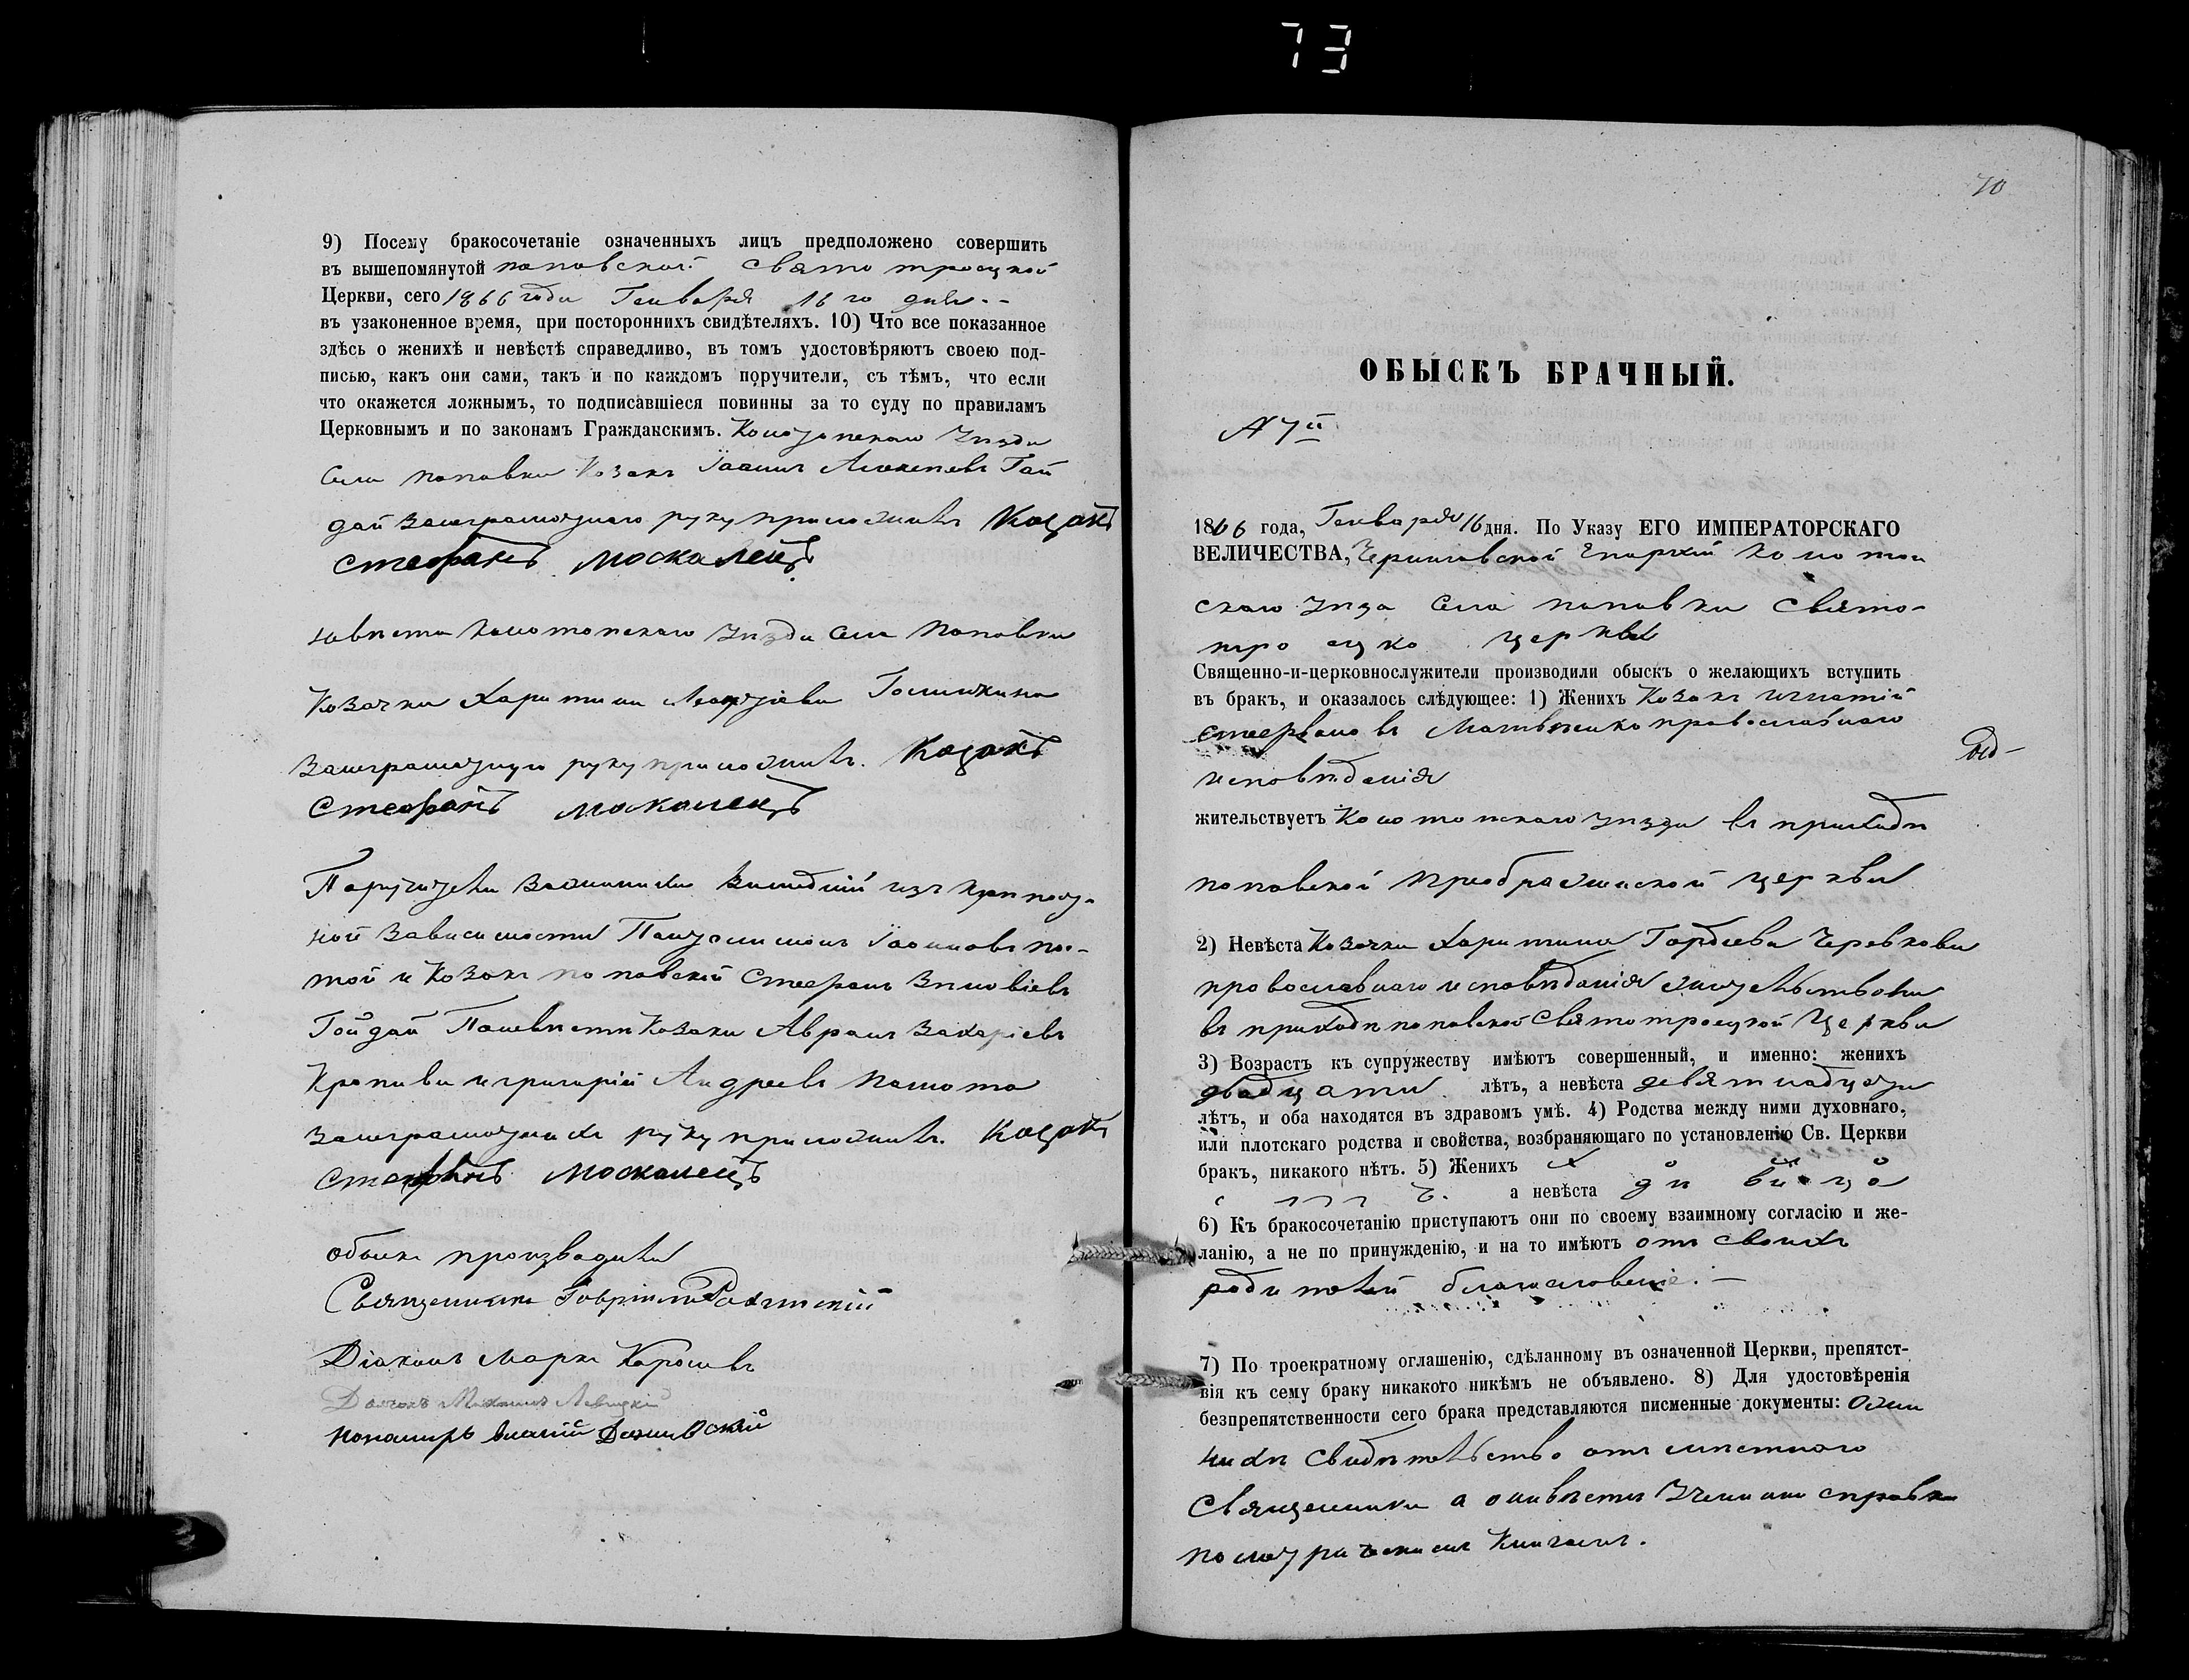 73
9) Посему бракосочетаніе означенныхъ лицъ предположено совершить
въ вышепомянутой поповской Свято троецкой
Церкви, сего 1866 года Генваря 16 го дня. -
въ узаконенное время, при постороннихъ свидѣтеляхъ. 10) Что все показанное
здѣсь о женихѣ и невѣстѣ справедливо, въ томъ удостовѣряютъ своею под-
писью, какъ они сами, такъ и по каждомъ поручители, съ тѣмъ, что если
что окажется ложнымъ, то подписавшіеся повинны за то суду по правиламъ
Церковнымъ и по законамъ Гражданскимъ. уѣзда
Села поповки Козакъ Іоаннъ Гай
дай руку приложилъ Козакъ
Стефанъ Москалецъ
невѣста Конотопскаго уѣзда села Поповки
Козачка Харитина
руку приложилъ. Козакъ
Стефанъ Москалецъ
Поручители вышедшій изъ крѣпост-
ной зависимости Іоанновъ
и Козакъ поповскій Стефанъ
Гайдай По невѣсти Козаки Авраамъ Захаріевъ
Кропива и григорій Андреевъ
руку приложилъ. Козакъ
Стефанъ Москалецъ
обыскъ производили
Священникъ Гавріилъ
Діаконъ Марко
Дьячокъ Михаилъ Левицкій
пономарь
70
ОБЫСКЪ БРАЧНЫЙ.
N 7й
1866 года, Генваря 16 дня. По Указу ЕГО ИМПЕРАТОРСКАГО
ВЕЛИЧЕСТВА, Черниговской Епархіи Конотоп
скаго уѣзда Села поповки Свято-
троецко церкви
Священно-и-церковнослужители производили обыскъ о желающихъ вступить
въ бракъ, и оказалось слѣдующее: 1) Женихъ Козакъ игнатій
Стефановъ Матвѣенко православнаго
исповѣданія
жительствуетъ Конотопскаго уѣзда въ приходѣ
поповской преображенской церкви
2) Невѣста Козачка Харитина Гордѣева Черевкова
православнаго исповѣданія жительствомъ
въ приходѣ поповской Свято троецкой Церкви
3) Возрастъ къ супружеству имѣютъ совершенный, и именно: женихъ
двадцати лѣтъ, а невѣста девятнадцати
лѣтъ, и оба находятся въ здравомъ умѣ. 4) Родства между ними духовнаго,
или плотскаго родства и свойства, возбраняющаго по установленію Св. Церкви
бракъ, никакого нѣтъ. 5) Женихъ х о
л о с т ъ. а невѣста дѣвица
6) Къ бракосочетанію приступаютъ они по своему взаимному согласію и же-
ланію, а не по принужденію, и на то имѣютъ отъ своихъ
родителей благословеніе. -
7) По троекратному оглашенію, сдѣланному въ означенной Церкви, препятст-
вія къ сему браку никакого никѣмъ не объявлено. 8) Для удостовѣренія
безпрепятственности сего брака представляются писменные документы: О жи
нихѣ свидѣтельство отъ мѣстнаго
Священника а о невѣсти учинена справка
по метрическимъ Книгамъ.